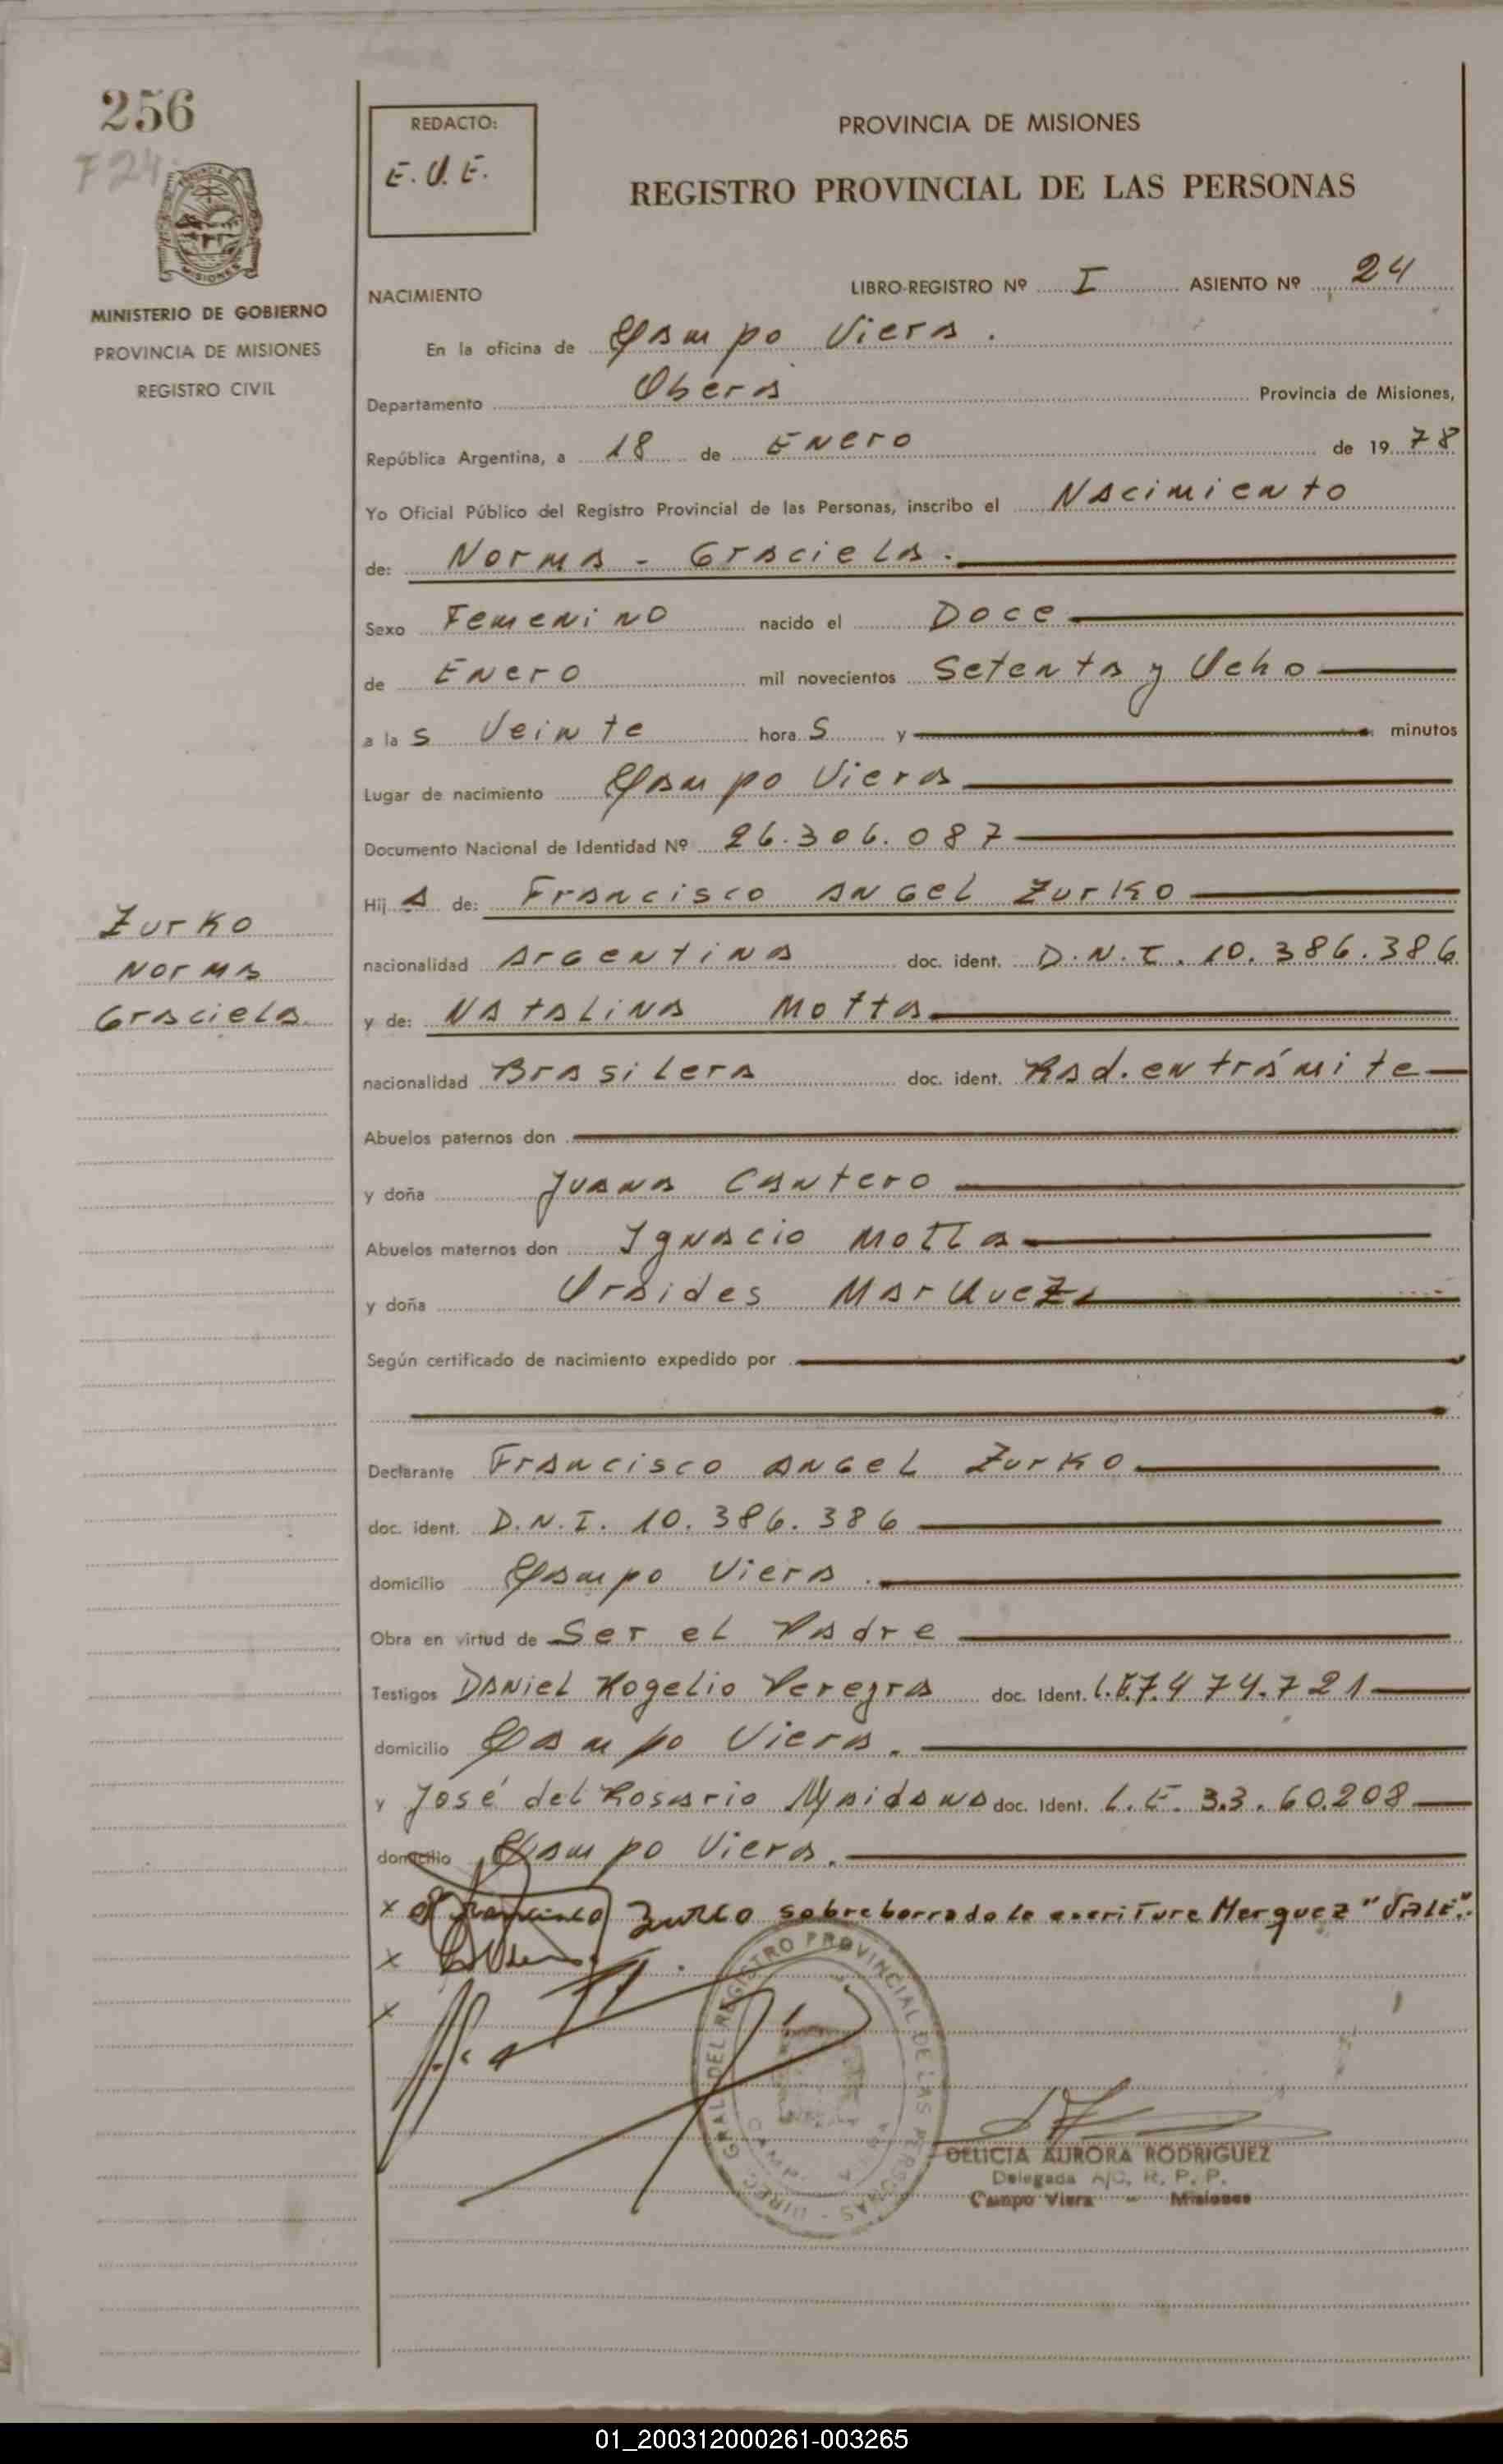 256
724
REDACTO:
E.U.E.
PROVINCIA DE MISIONES
REGISTRO PROVINCIAL DE LAS PERSONAS
MINISTERIO DE GOBIERNO
PROVINCIA DE MISIONES
REGISTRO CIVIL
NACIMIENTO
LIBRO-REGISTRO Nº I ASIENTO Nº 24
En la oficina de Campo Viera.
Departamento Oberá Provincia de Misiones,
República Argentina, a 18 de Enero de 1978
Yo Oficial Público del Registro Provincial de las Personas, inscribo el Nacimiento
de: Norma - Graciela.
Sexo Femenino nacido el Doce
de Enero mil novecientos Setenta y Ocho
a las Veinte horas y minutos
Lugar de nacimiento Campo Viera
Documento Nacional de Identidad Nº 26.306.087
Hija de: Francisco Angel Zurko
Zurko
Norma
Graciela.
nacionalidad Argentina doc. ident. D.N.I. 10.386.386
y de: Natalina Motta
nacionalidad Brasilera doc. ident. Rad. en trámite
Abuelos paternos don
y doña Juana Cantero
Abuelos maternos don Ignacio Motta
y doña Oraides Marquez
Según certificado de nacimiento expedido por
Declarante Francisco Angel Zurko
doc. ident. D.N.I. 10.386.386
domicilio Campo Viera.
Obra en virtud de Ser el Padre
Testigos Daniel Rogelio Pereyra doc. Ident. L.E.7.474.721
domicilio Campo Viera.
y José del Rosario Maidana doc. Ident. L.E. 33.60.208
domicilio Campo Viera.
x Francisco Zurko sobreborrado la escritura Marquez "Vale".
x
x
DIREC. GRAL. DEL REGISTRO PROVINCIAL DE LAS PERSONAS
DELICIA AURORA RODRIGUEZ
Delegada A/C. R. P. P.
Campo Viera - Misiones
01_200312000261-003265